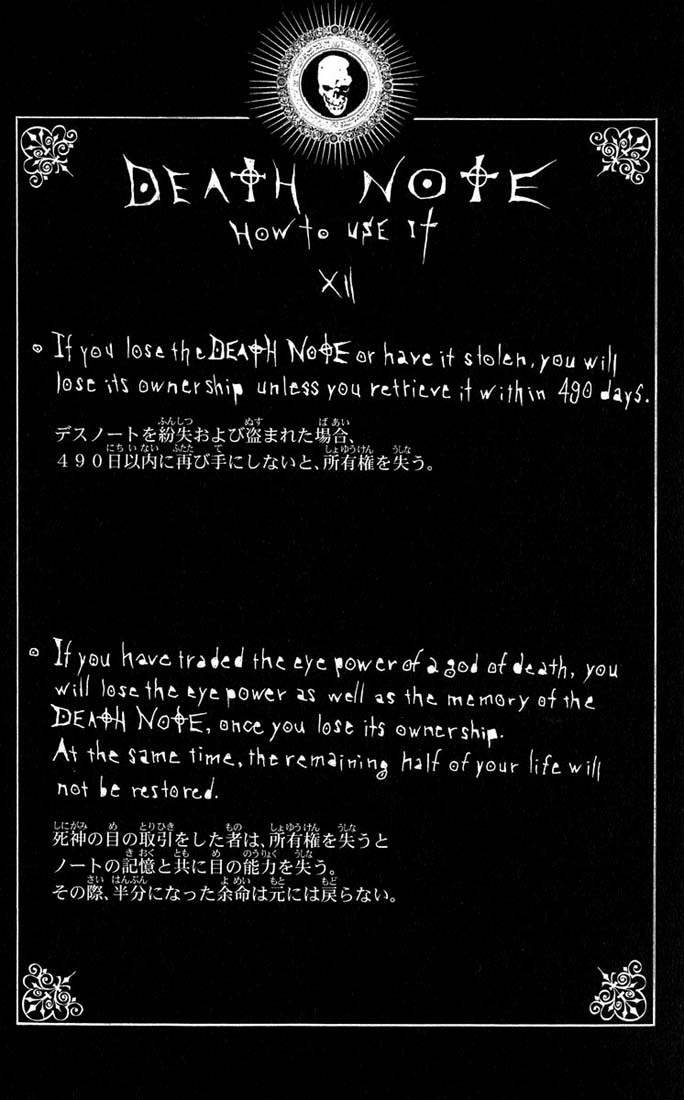 DEATH NOTE
HOW to USE IT
XII
If you lose the DEATH NOTE or have it stolen, you will
lose its ownership unless you retrieve it within 490 days.
デスノートを紛失および盗まれた場合、
490日以内に再び手にしないと、所有権を失う。
If you have traded the eye power of a god of death, you
will lose the eye power as well as the memory of the
DEATH NOTE, once you lose its ownership.
At the same time, the remaining half of your life will
not be restored.
死神の目の取引をした者は、所有権を失うと
ノートの記憶と共に目の能力を失う。
その際、半分になった余命は元には戻らない。